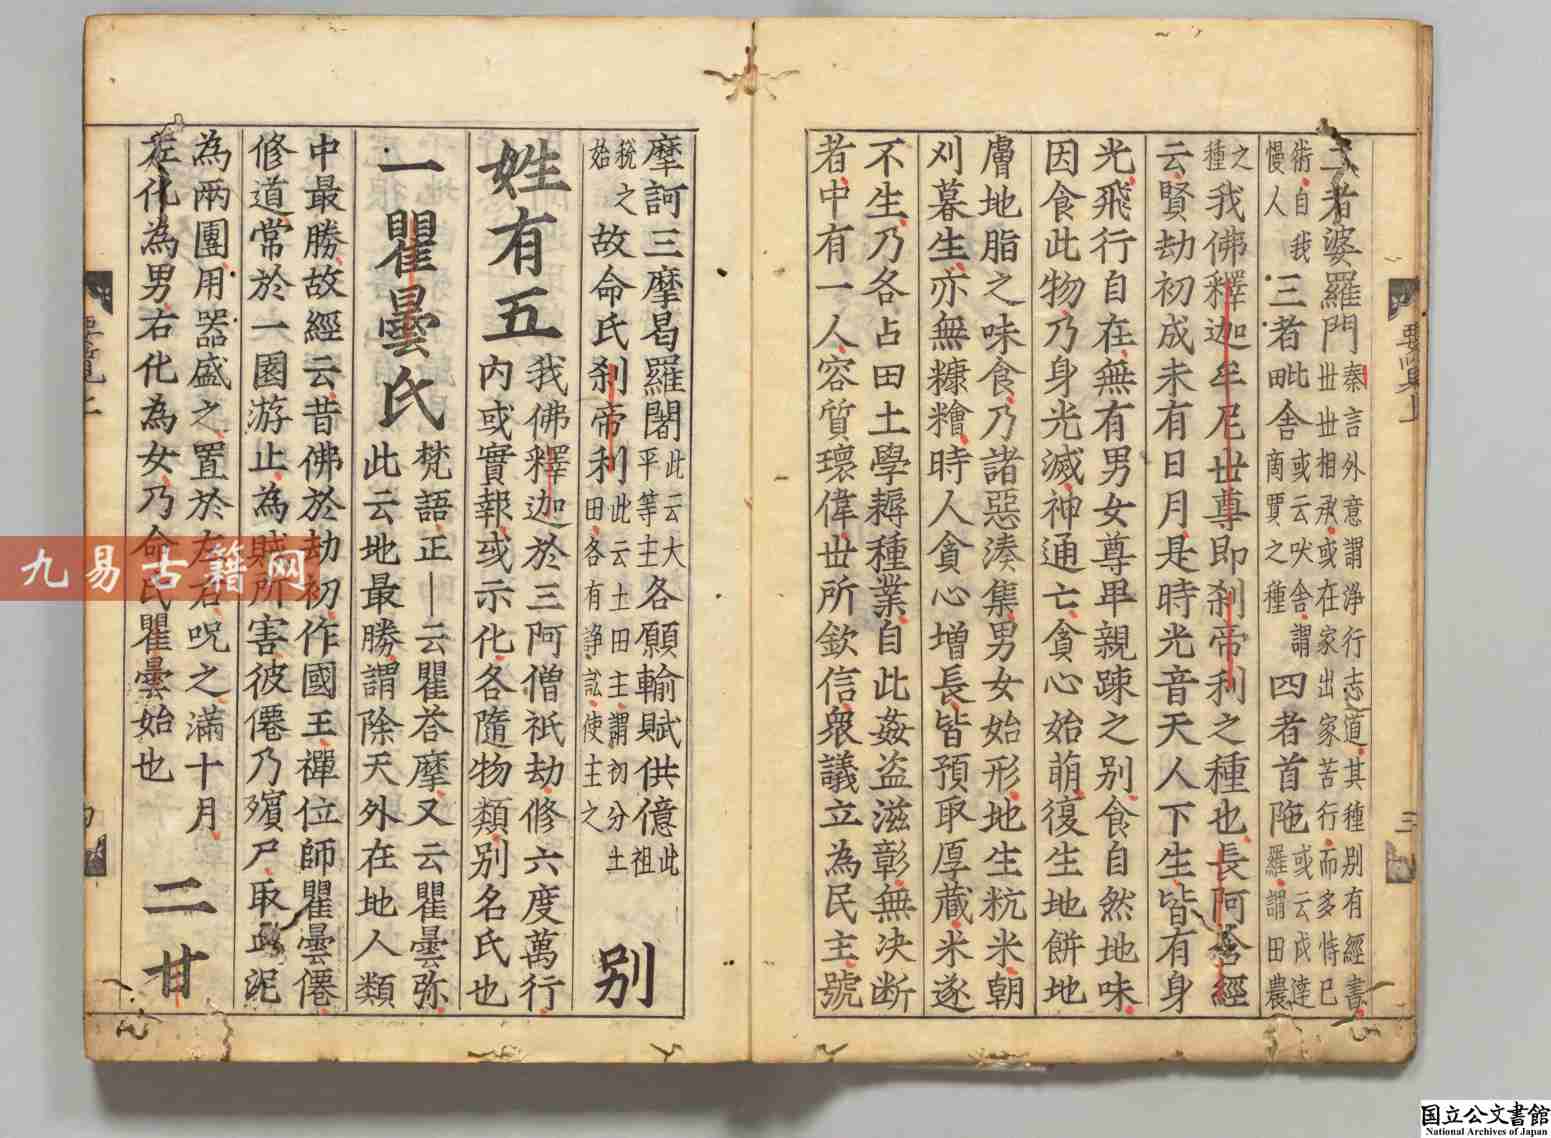 二者婆羅門秦言外意謂淨行志道其種別有經書世世相承或在家出家苦行而多恃己
術自我慢人三者毗舍或云吠舍謂商賈之種四者首陁或云戍達羅謂田農
之種我佛釋迦牟尼世尊即剎帝利之種也長阿含經
云賢劫初成未有日月是時光音天人下生皆有身
光飛行自在無有男女尊卑親踈之別食自然地味
因食此物乃身光滅神通亡貪心始萌復生地餅地
膚地脂之味食乃諸惡湊集男女始形地生粇米朝
刈暮生亦無糠糩時人貪心增長皆預取厚藏米遂
不生乃各占田土學耨種業自此姦盗滋彰無決断
者中有一人容質瓌偉世所欽信衆議立為民主號
摩訶三摩曷羅闍此云大平等主各願輸賦供億此祖
稅之始故命氏剎帝利此云土田主謂初分土田各有諍訟使主之 別
姓有五我佛釋迦於三阿僧祇劫修六度萬行內或實報或示化各隨物類別名氏也
一瞿曇氏梵語正一云瞿荅摩又云瞿曇弥此云地最勝謂除天外在地人類
中最勝故經云昔佛於劫初作國王禪位師瞿曇僊
修道常於一園游止為賊所害彼僊乃殯尸取血泥
為兩團用器盛之置於左右呪之滿十月
左化為男右化為女乃命氏瞿曇始也 二甘
要覽上
三
要覽上
九易古籍网
国立公文書館
National Archives of Japan